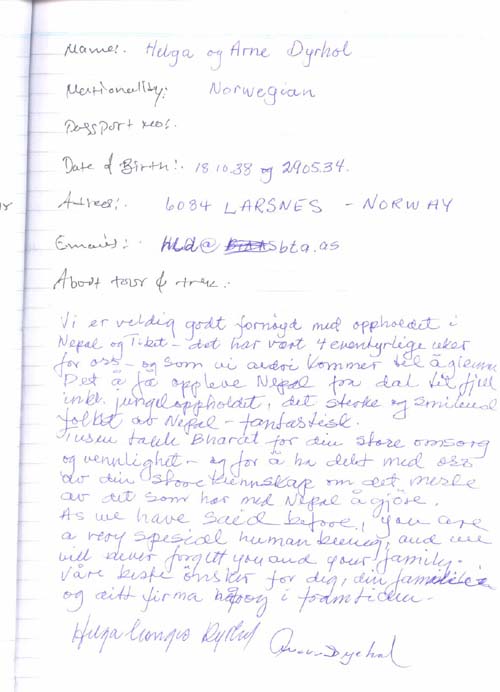 Name:. Helga og Arne Dyrhol
Nationality: Norwegian
Passport no:.
Date of Birth:. 18.10.38 og 29.05.34.
Adress:. 6084 LARSNES - NORWAY
Email:. hld@ sbta.as
About tour & trek:.
Vi er veldig godt fornøyd med oppholdet i
Nepal og Tibet - det har vært 4 eventyrlige uker
for oss - og som vi aldri kommer til å glemme
Det å få oppleve Nepal fra dal til fjell
inkl. jungeloppholdet, det sterke og smilende
folket av Nepal - fantastisk.
Tusen takk Bharat for din store omsorg
og vennlighet - og for å ha delt med oss
av din store kunnskap om det meste
av det som har med Nepal å gjöre.
As we have said before, you are
a very spesial human being, and we
will never forgett you and your family.
Våre beste önsker for dig, din familie
og ditt firma i framtiden.
Helga Dyrhol Arne Dyrhol